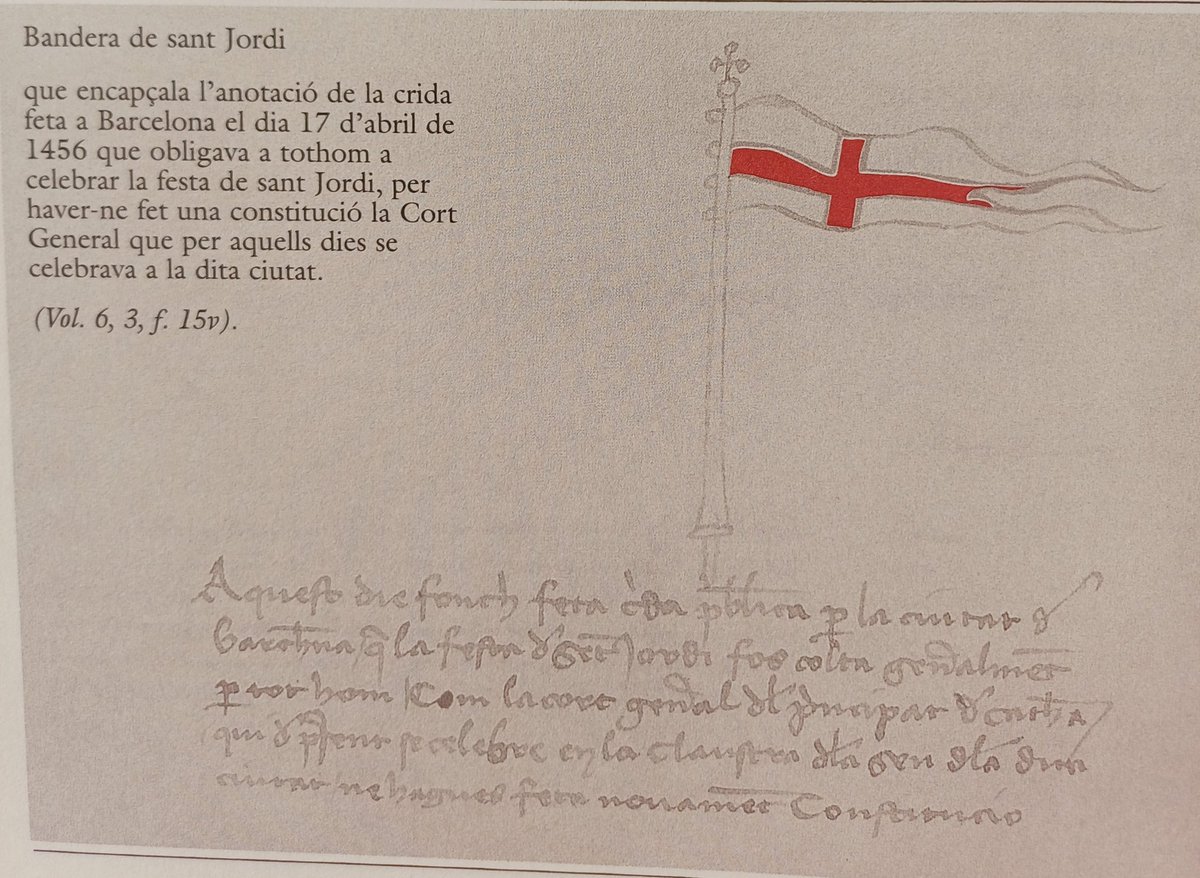 Bandera de sant Jordi
que encapçala l'anotació de la crida
feta a Barcelona el dia 17 d'abril de
1456 que obligava a tothom a
celebrar la festa de sant Jordi, per
haver-ne fet una constitució la Cort
General que per aquells dies se
celebrava a la dita ciutat.
(Vol. 6, 3, f. 15v).
Aquest die fonch feta c̀da pb̄lica p̱ la ciutat d'
Barch̄na / q̄ la festa d' Sēt Jordi fos colta gen̄alment
p̱ tot hom / Com la cort gen̄al dl' p̀ncipat d' Cath̄a
qui d' pn̄t se celebre en la Claustra dl̄a Seu dl̄a dita
ciutat ne hagues feta novamēt Constitucio